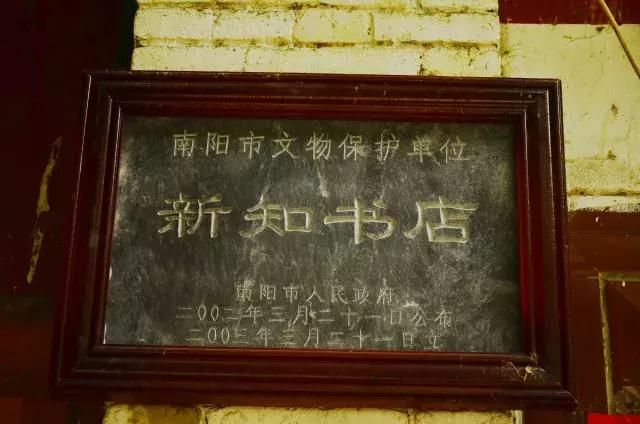 南阳市文物保护单位
新知书店
南阳市人民政府
二00二年三月二十一日公布
二00二年三月二十一日立